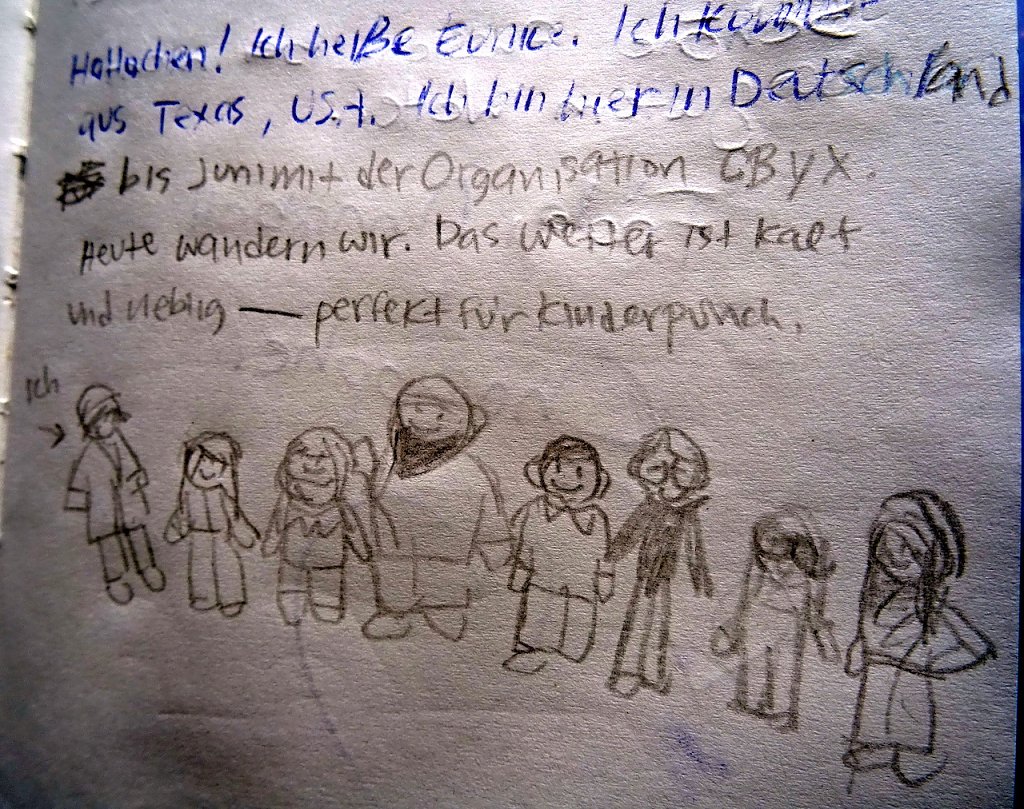 Hallochen! Ich heiße Eunice. Ich komme
aus Texas, USA. Ich bin hier in Deutschland
bis Juni mit der Organisation CByX.
Heute wandern wir. Das Wetter ist kalt
und neblig — perfekt für Kinderpunsch.
Ich